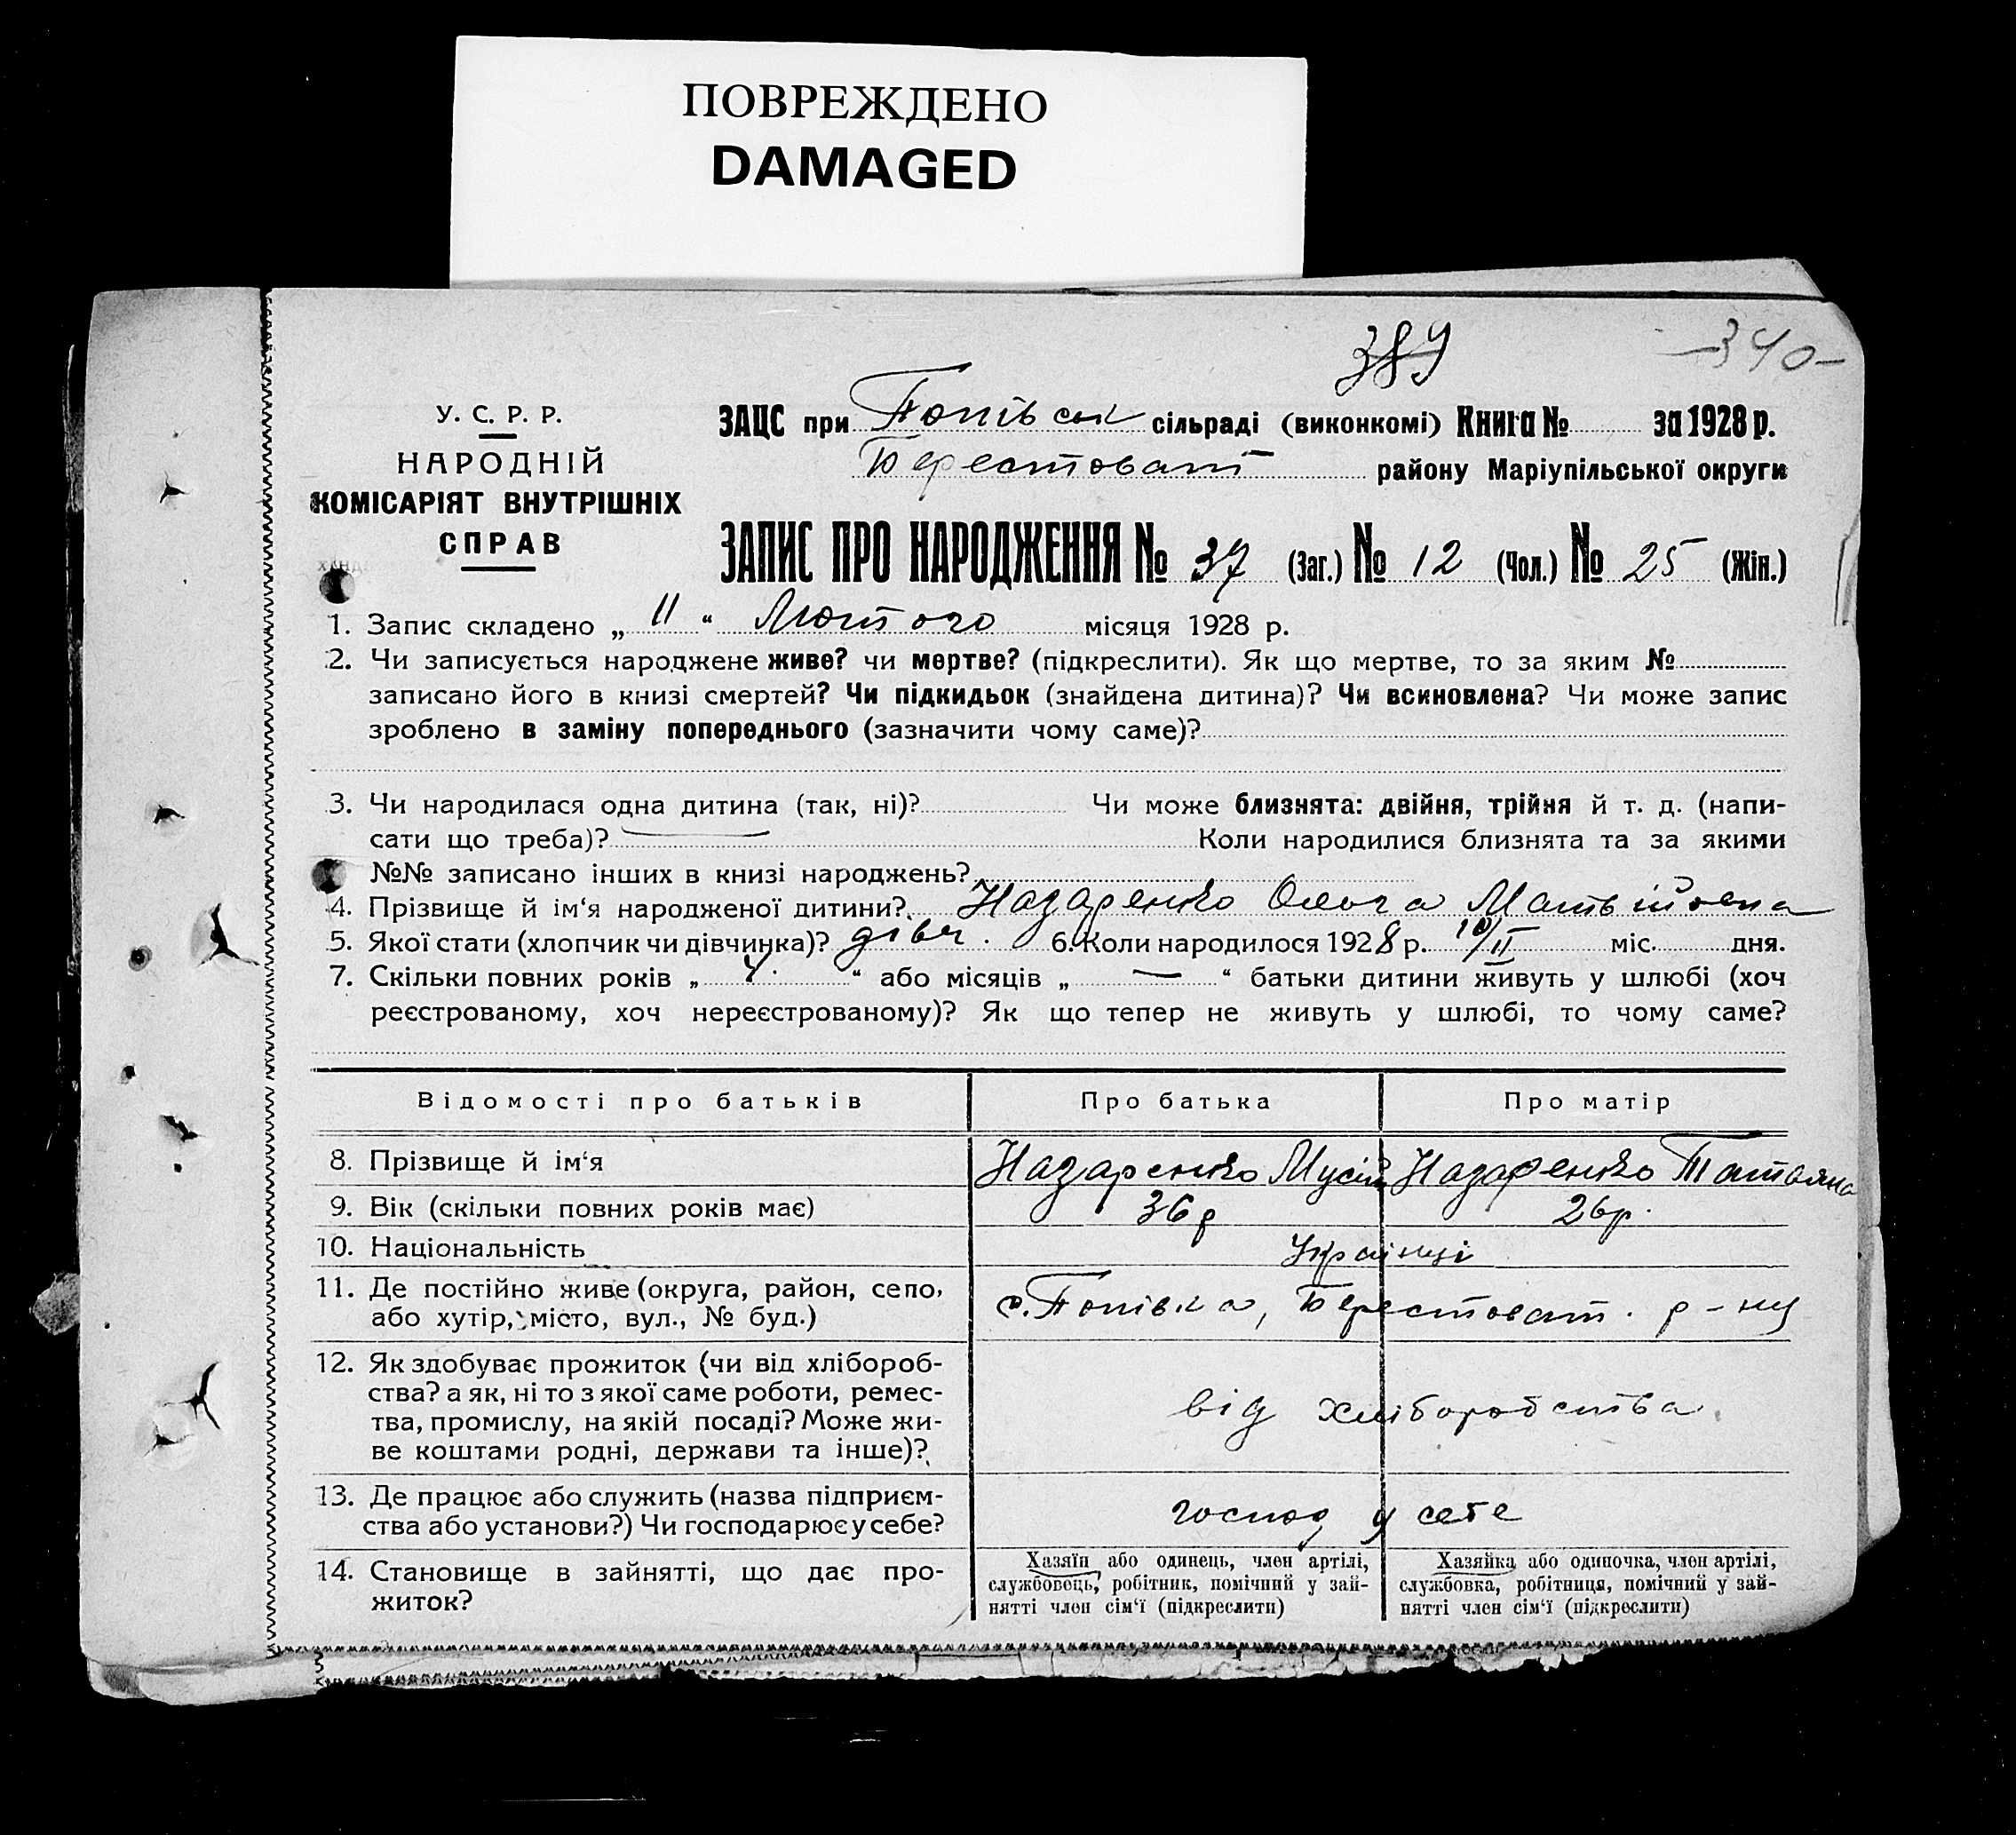 ПОВРЕЖДЕНО
DAMAGED
389
-340-
У. С. Р. Р.
НАРОДНІЙ
КОМІСАРІЯТ ВНУТРІШНІХ
СПРАВ
ЗАЦС при Попівськ сільраді (виконкомі) Книга № за 1928 р.
Берестоват району Маріупільської округи
ЗАПИС ПРО НАРОДЖЕННЯ № 37 (Заг.) № 12 (Чол.) № 25 (Жін.)
1. Запис складено „ 11 “ Лютого місяця 1928 р.
2. Чи записується народжене живе? чи мертве? (підкреслити). Як що мертве, то за яким №
записано його в книзі смертей? Чи підкидьок (знайдена дитина)? Чи всиновлена? Чи може запис
зроблено в заміну попереднього (зазначити чому саме)?
3. Чи народилася одна дитина (так, ні)? Чи може близнята: двійня, трійня й т. д. (напи-
сати що треба)? Коли народилися близнята та за якими
№№ записано інших в книзі народжень?
4. Прізвище й ім‘я народженої дитини? Назаренко Ольга Матвійовна
5. Якої стати (хлопчик чи дівчинка)? дівч. 6. Коли народилося 1928 р. 10/II міс. дня.
7. Скільки повних років „ 4. “ або місяців „ — “ батьки дитини живуть у шлюбі (хоч
реєстрованому, хоч нереєстрованому)? Як що тепер не живуть у шлюбі, то чому саме?
Відомості про батьків Про батька Про матір
8. Прізвище й ім‘я Назаренко Мусій Назаренко Татьяна
9. Вік (скільки повних років має) 36 р 26 р.
10. Національність Українці
11. Де постійно живе (округа, район, село,
або хутір, місто, вул., № буд.) с. Попівка, Берестоват. р-ну
12. Як здобуває прожиток (чи від хлібороб-
ства? а як, ні то з якої саме роботи, ремес-
тва, промислу, на якій посаді? Може жи-
ве коштами родні, держави та інше)?
від хліборобства
13. Де працює або служить (назва підприєм-
ства або установи?) Чи господарює у себе?
господ у себе
14. Становище в зайнятті, що дає про-
житок?
Хазяїн або одинець, член артілі,
службовець, робітник, помічний у зай-
нятті член сім‘ї (підкреслити)
Хазяйка або одиночка, член артілі,
службовка, робітниця, помічний у зай-
нятті член сім‘ї (підкреслити)